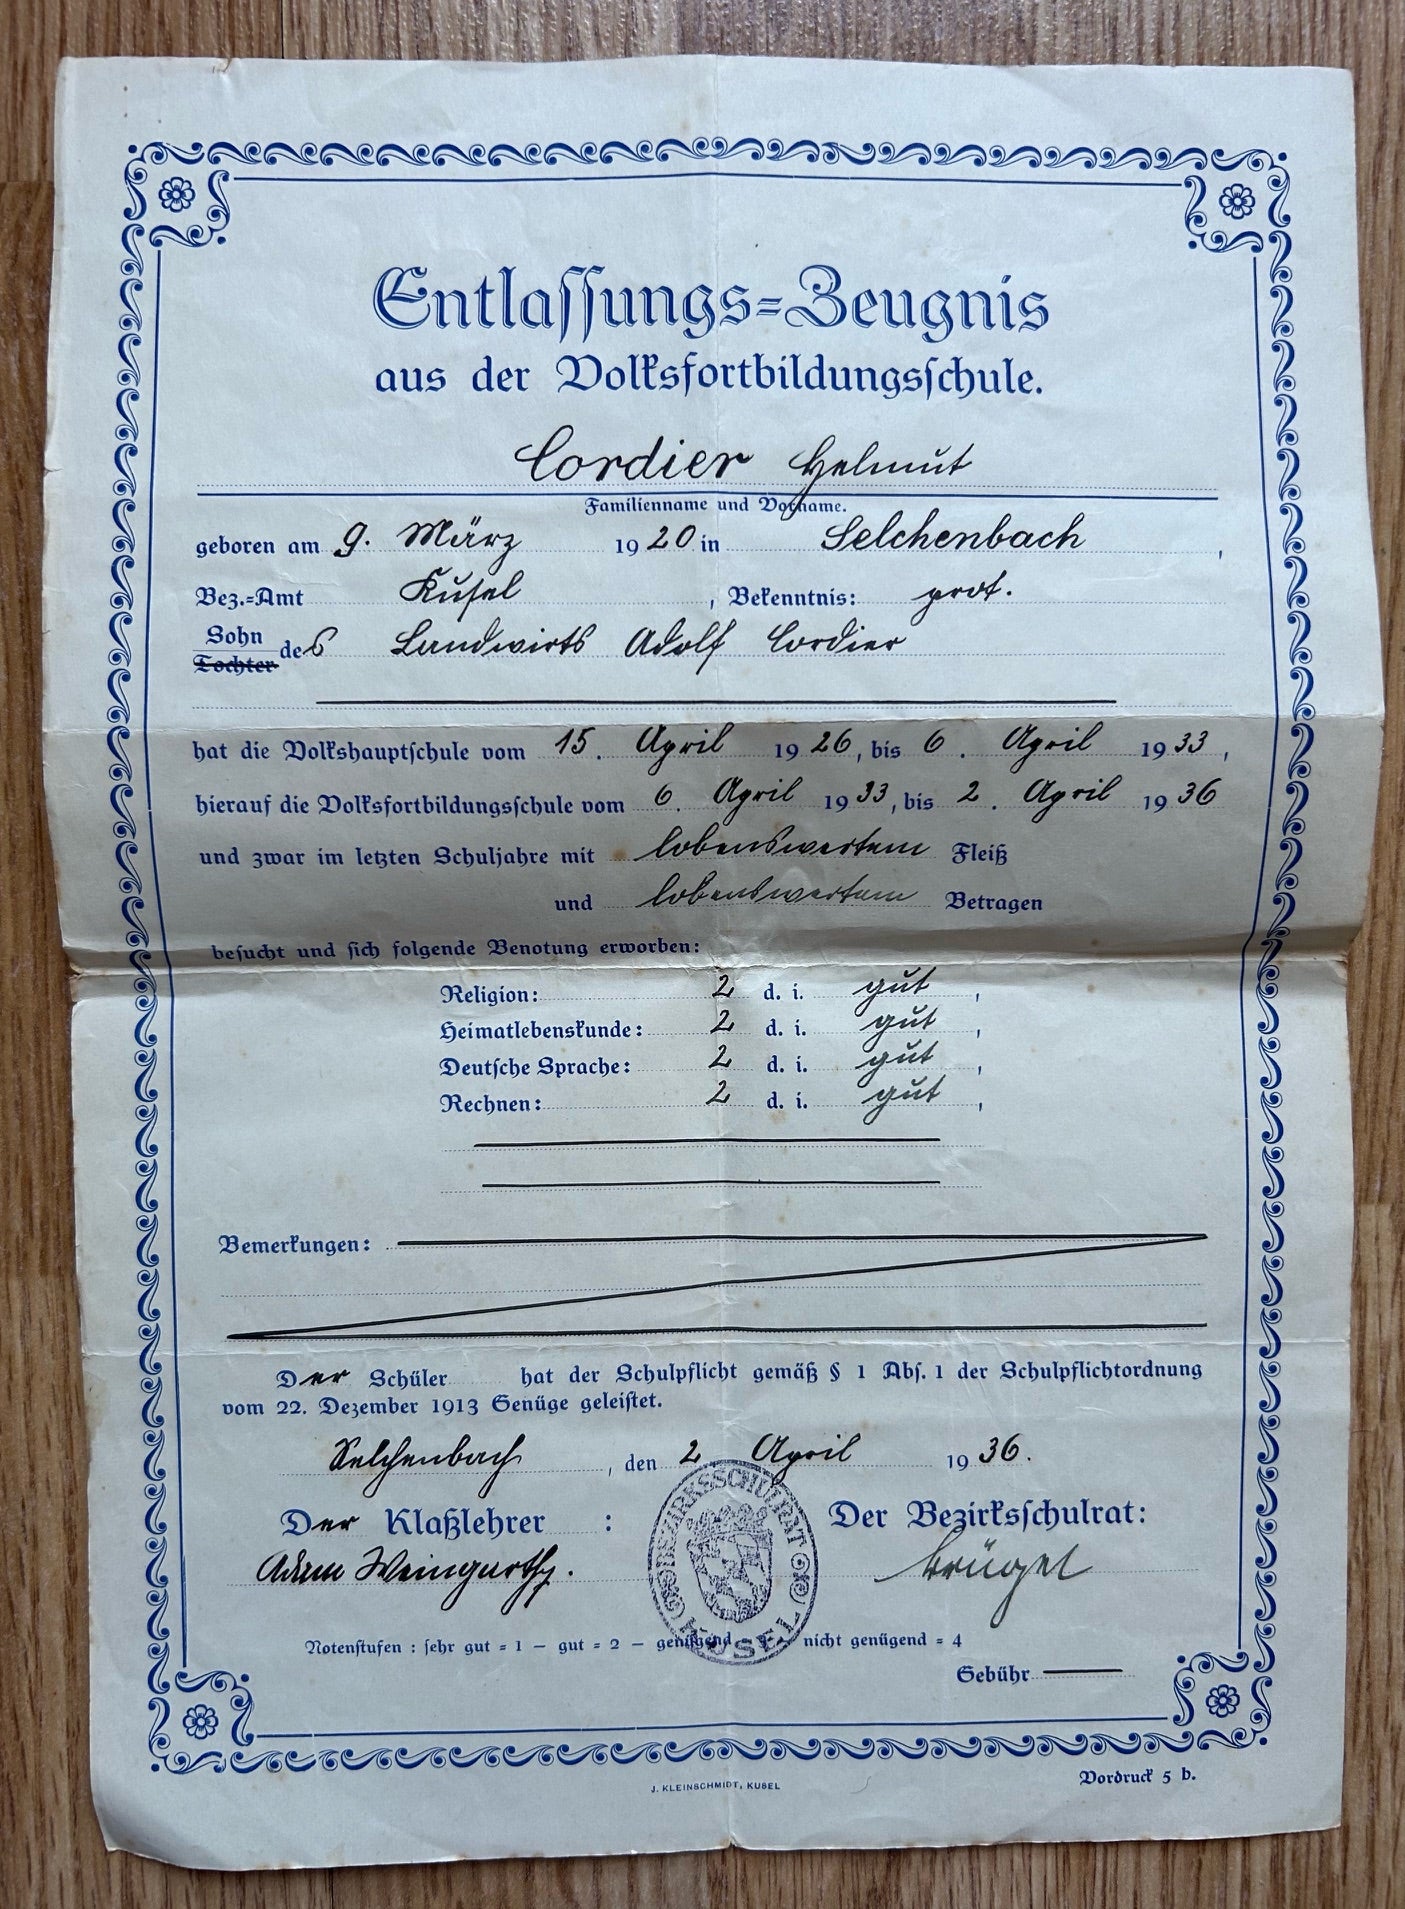 Entlaſſungs=Zeugnis
aus der Volksfortbildungsſchule.
Cordier Helmut
Familienname und Vorname.
geboren am 9. März 1920 in Selchenbach,
Bez.=Amt Kusel, Bekenntnis: prot.
Sohn
Tochter des Landwirts Adolf Cordier
hat die Volkshauptſchule vom 15. April 1926, bis 6. April 1933,
hierauf die Volksfortbildungsſchule vom 6. April 1933, bis 2. April 1936
und zwar im letzten Schuljahre mit lobenswertem Fleiß
und lobenswertem Betragen
beſucht und ſich folgende Benotung erworben:
Religion: 2 d. i. gut,
Heimatlebenskunde: 2 d. i. gut,
Deutſche Sprache: 2 d. i. gut,
Rechnen: 2 d. i. gut,
Bemerkungen:
Der Schüler hat der Schulpflicht gemäß § 1 Abſ. 1 der Schulpflichtordnung
vom 22. Dezember 1913 Genüge geleiſtet.
Selchenbach, den 2 April 1936.
Der Klaßlehrer : Der Bezirksſchulrat:
Adam Weingarth. Brügel
BEZIRKSSCHULRAT
KUSEL
Notenſtufen : ſehr gut = 1 — gut = 2 — genügend = 3 — nicht genügend = 4
Gebühr
J. KLEINSCHMIDT, KUSEL
Vordruck 5 b.